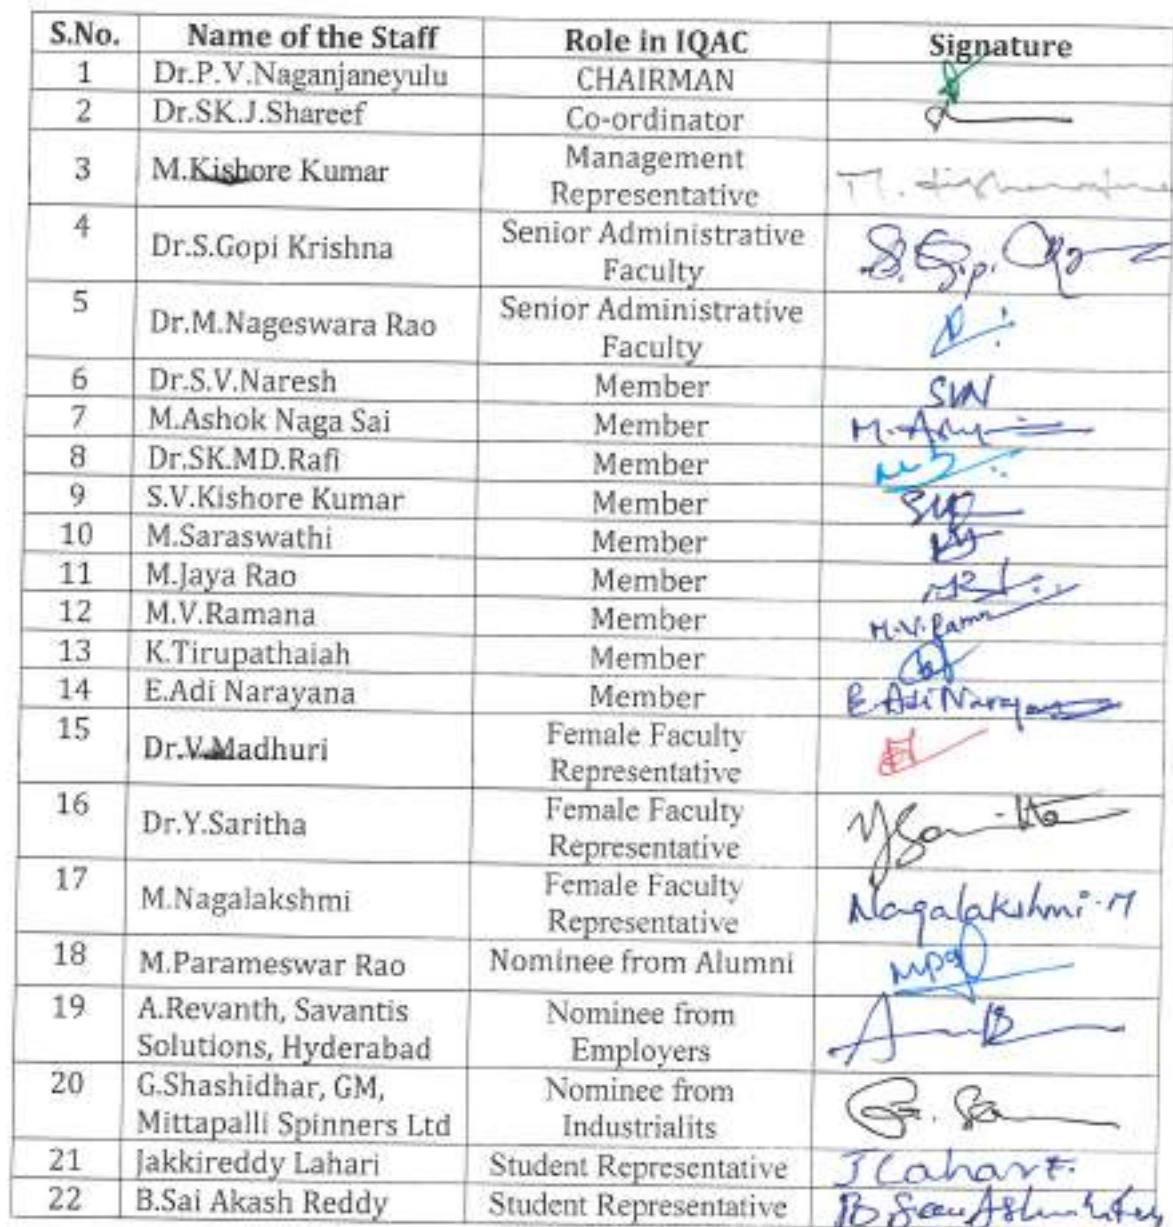 S.No. Name of the Staff Role in IQAC Signature
1 Dr.P.V.Naganjaneyulu CHAIRMAN
2 Dr.SK.J.Shareef Co-ordinator
3 M.Kishore Kumar Management
Representative
4 Dr.S.Gopi Krishna Senior Administrative
Faculty
5 Dr.M.Nageswara Rao Senior Administrative
Faculty
6 Dr.S.V.Naresh Member SVN
7 M.Ashok Naga Sai Member
8 Dr.SK.MD.Rafi Member
9 S.V.Kishore Kumar Member
10 M.Saraswathi Member
11 M.Jaya Rao Member
12 M.V.Ramana Member
13 K.Tirupathaiah Member
14 E.Adi Narayana Member E.Adi Narayana
15 Dr.V.Madhuri Female Faculty
Representative
16 Dr.Y.Saritha Female Faculty
Representative
17 M.Nagalakshmi Female Faculty
Representative Nagalakshmi.M
18 M.Parameswar Rao Nominee from Alumni
19 A.Revanth, Savantis
Solutions, Hyderabad Nominee from
Employers
20 G.Shashidhar, GM,
Mittapalli Spinners Ltd Nominee from
Industrialits
21 Jakkireddy Lahari Student Representative
22 B.Sai Akash Reddy Student Representative